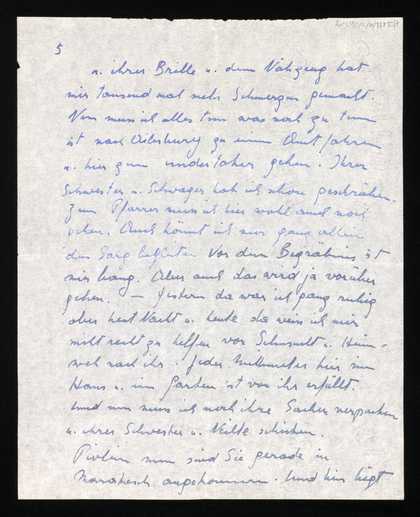 5
u. ihrer Brille u. dem Nähzeug hat
mir tausend mal mehr Schmerzen gemacht.
Nun muss ich alles tun was noch zu tun
ist nach zu einem Amt fahren
u. hier zum undertaker gehen. Ihrer
Schwester u. Schwager hab ich schon geschrieben.
Zum Pfarrer muss ich hier wohl auch noch
gehen. Auch könnt ich nur ganz allein
den Sarg begleiten. Vor dem Begräbnis ist
mir bang. Aber auch das wird ja vorüber
gehen. — Gestern da war ich ganz ruhig
aber heut Nacht u. heute da weiss ich mir
nicht recht zu helfen vor Sehnsucht u. Heim-
weh nach ihr. Jeder hier im
Haus u. im Garten ist von ihr erfüllt.
Und nun muss ich noch ihre Sachen verpacken
u. ihrer Schwester u. Nichte schicken.
nun sind Sie gerade in
Marakesch angekommen. Und hier liegt